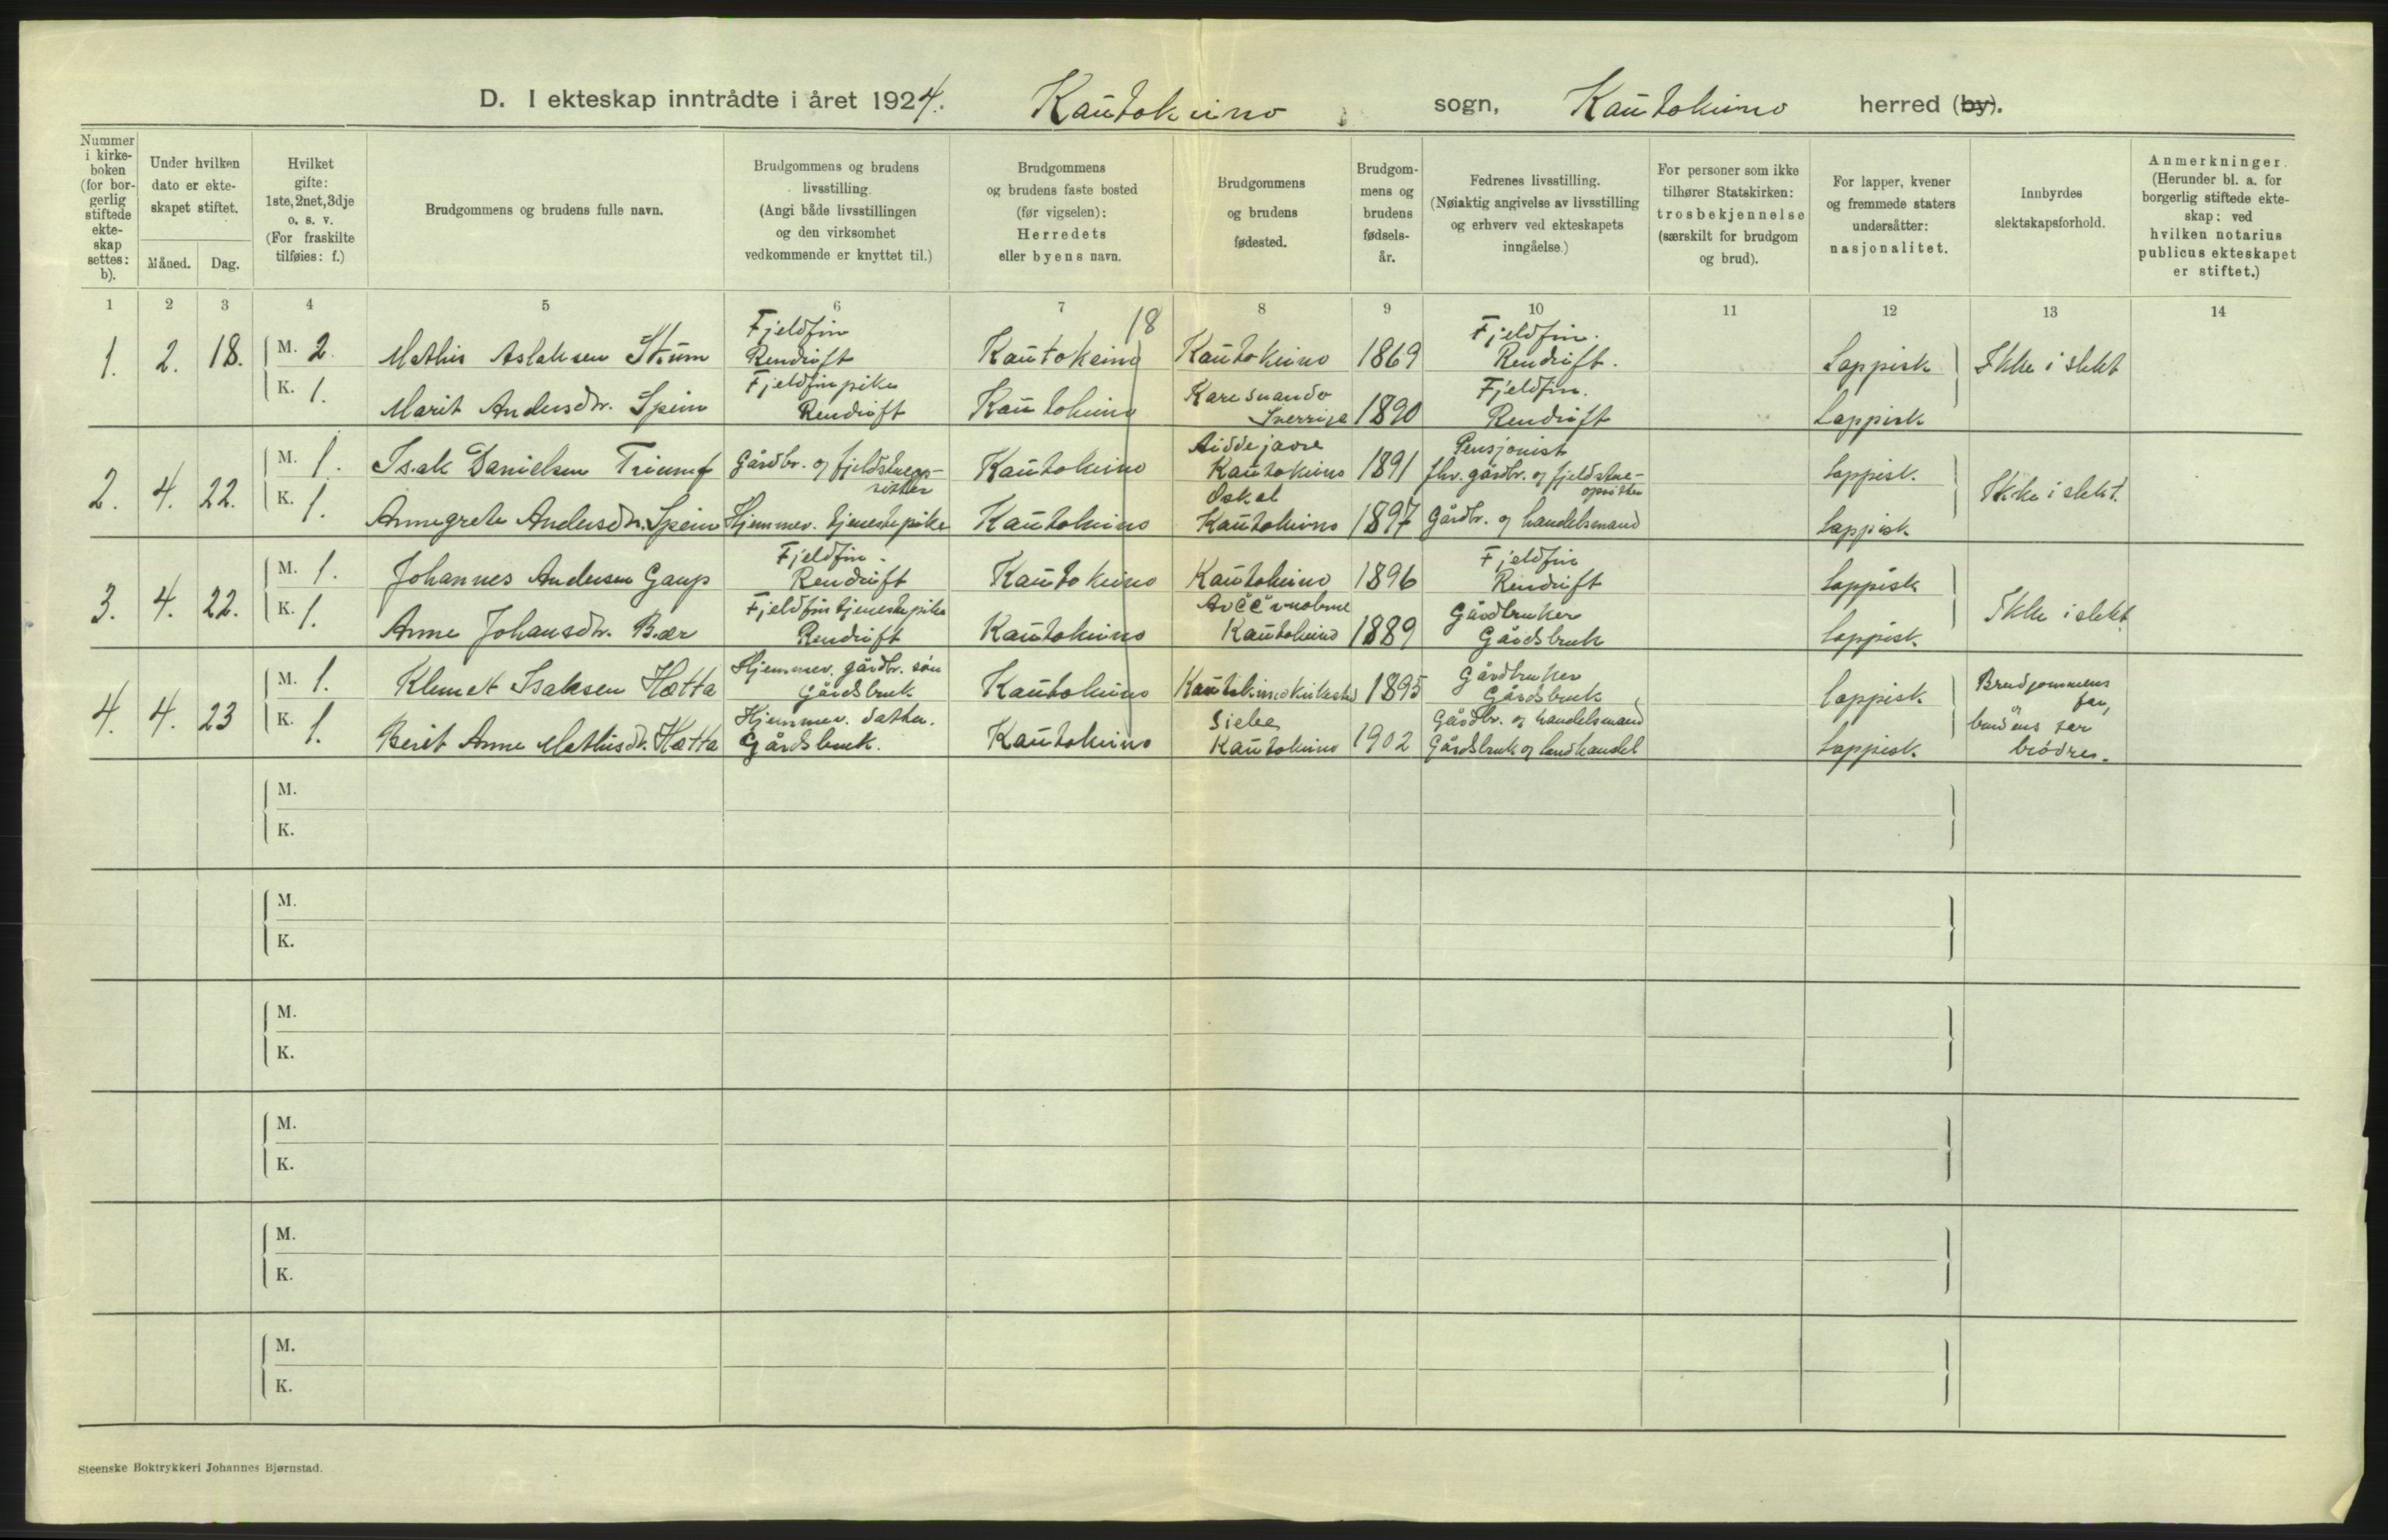 D. I ekteskap inntrådte i året 1924. Kautokeino sogn, Kautokeino herred (by).
Nummer i kirke- boken (for bor- gerlig stiftede ekte- skap settes: b).
Under hvilken dato er ekte- skapet stiftet.
Måned. Dag.
Hvilket gifte: 1ste, 2net, 3dje o. s. v. (For fraskilte tilføies: f.)
Brudgommens og brudens fulle navn.
Brudgommens og brudens livsstilling. (Angi både livsstillingen og den virksomhet vedkommende er knyttet til.)
Brudgommens og brudens faste bosted (før vigselen): Herredets eller byens navn.
Brudgommens og brudens fødested.
Brudgom- mens og brudens fødsels- år.
Fedrenes livsstilling. (Nøiaktig angivelse av livsstilling og erhverv ved ekteskapets inngåelse.)
For personer som ikke tilhører Statskirken: trosbekjennelse (særskilt for brudgom og brud).
For lapper, kvener og fremmede staters undersåtter: nasjonalitet.
Innbyrdes slektskapsforhold.
Anmerkninger. (Herunder bl. a. for borgerlig stiftede ekte- skap: ved hvilken notarius publicus ekteskapet er stiftet.)
1 2 3 4 5 6 7 8 9 10 11 12 13 14
18
1. 2. 18. M. 2. Mathis Aslaksen Skum Fjeldfin Rendrift Kautokeino Kautokeino 1869 Fjeldfin. Rendrift. Lappisk Ikke i slekt
K. 1. Marit Andersdtr. Spein Fjeldfinpike Rendrift Kautokeino Karesuando Sverrige 1890 Fjeldfin. Rendrift Lappisk
2. 4. 22. M. 1. Isak Danielsen Triumf Gårdbr. og fjeldstueop- sitter Kautokeino Aiddejavre Kautokeino 1891 Pensjonist fhv. gårdbr. og fjeldstue- opsitter Lappisk. Ikke i slekt.
K. 1. Annegrete Andersdtr. Spein Hjemmev. tjenestepike Kautokeino Oskal Kautokeino 1897 Gårdbr. og handelsmand Lappisk
3. 4. 22. M. 1. Johannes Andersen Gaup Fjeldfin - Rendrift Kautokeino Kautokeino 1896 Fjeldfin Rendrift Lappisk Ikke i slekt
K. 1. Anne Johansdtr. Bær Fjeldfin tjenestepike Rendrift Kautokeino Kautokeino 1889 Gårdbruker Gårdsbruk Lappisk
4. 4. 23 M. 1. Klemet Isaksen Hætta Hjemmev. gårdbr. søn Gårdsbruk Kautokeino Kautokeino kirkested 1895 Gårdbruker Gårdsbruk Lappisk. Brudgommens far, og brudens far brødre.
K. 1. Berit Anne Mathisdtr. Hætta Hjemmev. datter. Gårdsbruk. Kautokeino Siebe Kautokeino 1902 Gårdbr. og handelsmand Gårdsbruk og landhandel Lappisk.
M.
K.
M.
K.
M.
K.
M.
K.
M.
K.
M.
K.
Steenske Boktrykkeri Johannes Bjørnstad.